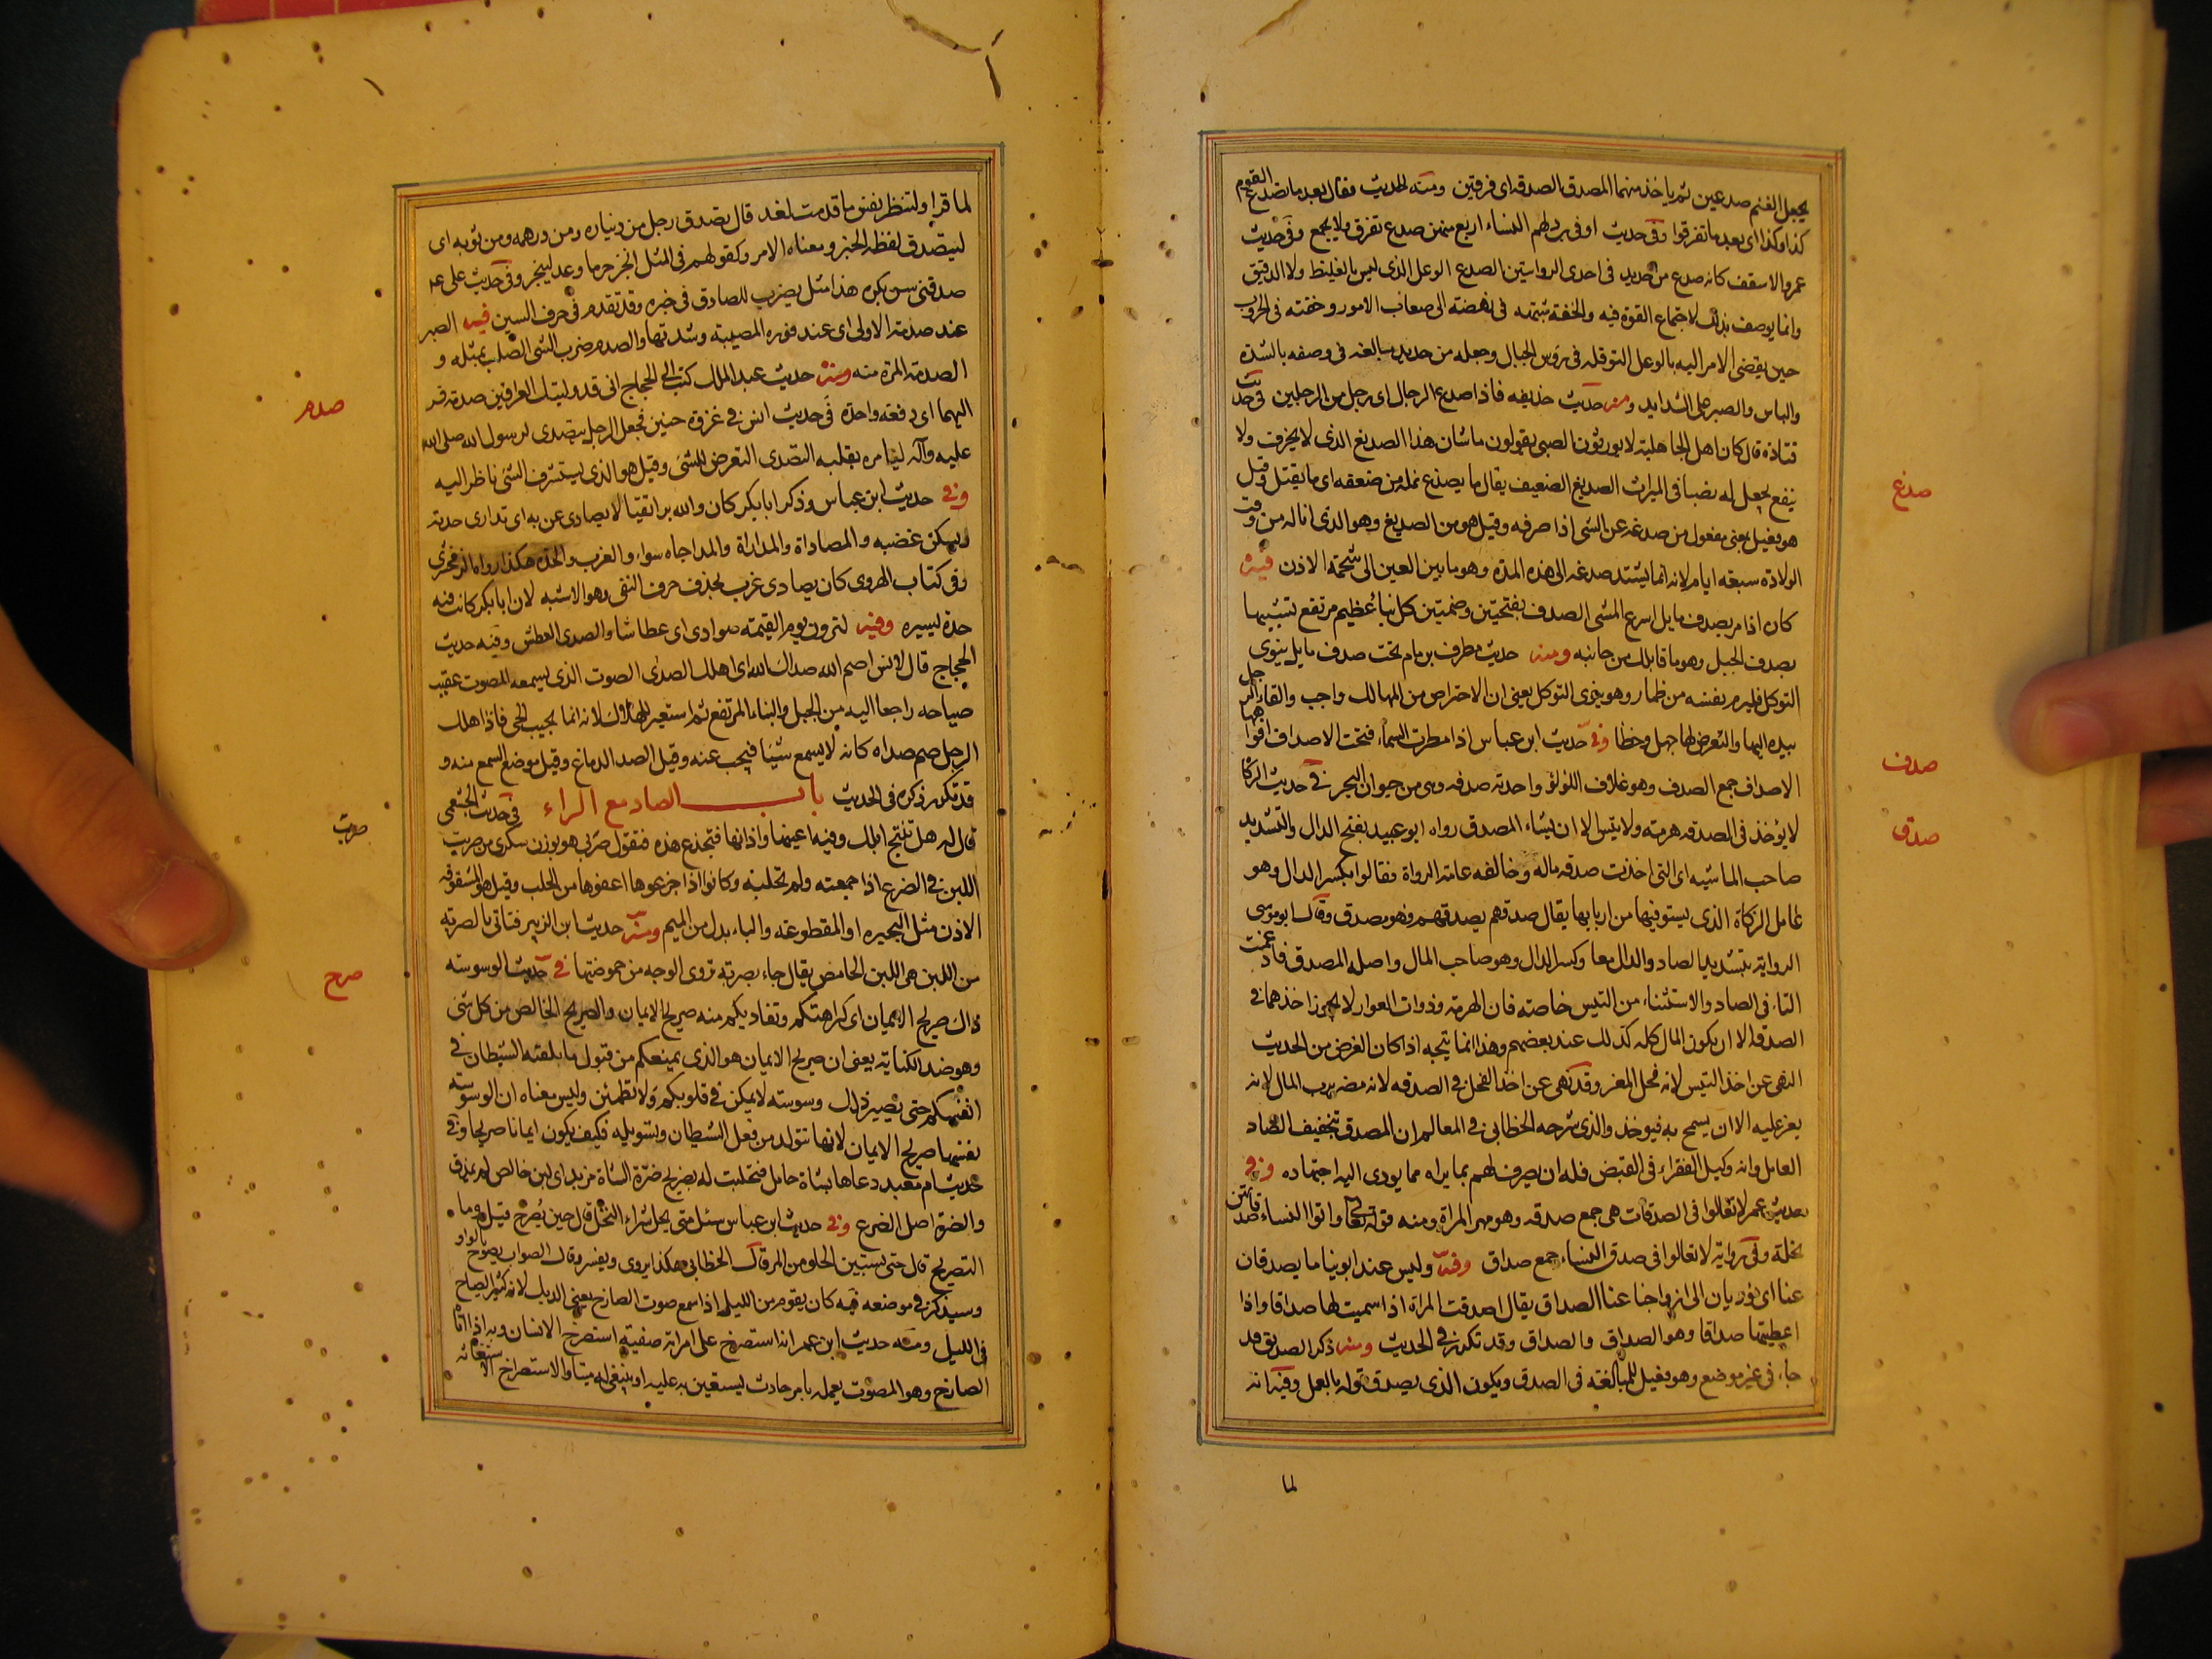 يجعل الغنم صدعين ثم ياخذ منهما المصدق الصدقة اى فرقتين ومنه الحديث فقال بعد ما تصدع القوم
كذا وكذا اى بعد ما تفرقوا وفى حديث اوفى بن دلهم النساء اربع منهن صدع تفرق ولا يجمع وفى حديث
عمر والاسقف كانه صدع من حديد فى احدى الروايتين الصدع الوعل الذى ليس بالغليظ ولا الدقيق
وانما يوصف بذلك لاجتماع القوة فيه والخفة شبهه فى نهضته الى صعاب الامور وخفته فى الحروب
حين يقضى الامر اليه بالوعل لتوقله فى رؤس الجبال وجعله من حديد مبالغة فى وصفه بالشدة
والباس والصبر على الشدايد ومنه حديث حذيفه فاذا صدع الرجال اى رجل من الرجلين فى حديث
قتادة قال كان اهل الجاهلية لا يورثون الصبى يقولون ما شان هذا الصديغ الذى لا يحترف ولا
ينفع يجعل له نصيبا فى الميراث الصديغ الضعيف يقال ما يصدغ نملة من ضعفه اى ما يقتل وقيل
هو فعيل بمعنى مفعول من صدغه عن الشى اذا صرفه وقيل هو من الصديغ وهو الذى اتى له من وقت
الولادة سبعة ايام لانه انما يشتد صدغه الى هذه المدة وهو ما بين العين الى شحمة الاذن فيه
كان اذا مر بصدف مايل اسرع المشى الصدف بفتحتين وضمتين كل بناء عظيم مرتفع تشبيها
بصدف الجبل وهو ما قابلك من جانبه ومنه حديث مطرف من نام تحت صدف مايل ينوى
التوكل فليرم بنفسه من طمار وهو ينوى التوكل يعنى ان الاحتراس من المهالك واجب والقاء الرجل
بيده اليها والتعرض لها جهل وخطا وفى حديث ابن عباس اذا مطرت السماء فتحت الاصداف افواهها
الاصداف جمع الصدف وهو غلاف اللولؤ واحدته صدفه وهى من حيوان البحر فى حديث الزكاة
لا يؤخذ فى الصدقه هرمة ولا تيس الا ان يشاء المصدق رواه ابو عبيد بفتح الدال والتشديد
صاحب الماشيه اى التى اخذت صدقه ماله وخالفه عامة الرواة فقالوا بكسر الدال وهو
عامل الزكاة الذى يستوفيها من اربابها يقال صدقهم يصدقهم فهو مصدق وقال ابو موسى
الرواية بتشديد الصاد والدال معا وكسر الدال وهو صاحب المال واصله المتصدق فادغمت
التاء فى الصاد والاستثناء من التيس خاصته فان الهرمة وذوات العوار لا يجوز اخذهما فى
الصدقه الا ان يكون المال كله كذلك عند بعضهم وهذا انما يتجه اذا كان الغرض من الحديث
النهى عن اخذ التيس لانه فحل المعز وقد نهى عن اخذ الفحل فى الصدقه لانه مضر برب المال لانه
يعز عليه الا ان يسمح به فيوخذ والذى شرحه الخطابى فى المعالم ان المصدق بتخفيف الصاد
العامل وانه وكيل الفقراء فى القبض فله ان يصرف لهم بما يراه مما يودى اليه اجتهاده وفى
حديث عمر لا تغالوا فى الصدقات هى جمع صدقه وهو مهر المراة ومنه قوله تعالى واتوا النساء صدقاتهن
نحلة وفى رواية لا تغالوا فى صدق النساء جمع صداق وفيه وليس عند ابوينا ما يصدقان
عنا اى يؤديان الى ازواجنا عنا الصداق يقال اصدقت المراة اذا سميت لها صداقا واذا
اعطيتها صداقا وهو الصداق والصداق وقد تكرر فى الحديث ومنه ذكر الصديق قد
جاء فى غير موضع وهو فعيل للمبالغة فى الصدق ويكون الذى يصدق قوله بالعمل وفيه انه
لما
صدغ
صدف
صدق
لما قرا ولتنظر نفس ما قدمت لغد قال تصدق رجل من ديناره ومن درهمه ومن ثوبه اى
ليتصدق لفظه الخبر ومعناه الامر وكقولهم فى المثل انجز حر ما وعد لينجز وفى حديث على عم
صدقنى سن بكره هذا مثل يضرب للصادق فى خبره وقد تقدم فى حرف السين فيه الصبر
عند صدمة الاولى اى عند فورة المصيبة وشدتها والصدم ضرب الشى الصلب بمثله و
الصدمة المرة منه ومنه حديث عبد الملك كتب الى الحجاج انى قد وليتك العراقين صدمة فسر
اليهما اى دفعة واحدة فى حديث انس فى غزوة حنين فجعل الرجل يتصدى لرسول الله صلى الله
عليه وآله ليامره بقتله التصدى التعرض للشى وقيل هو الذى يستشرف الشى ناظرا اليه
وفى حديث ابن عباس وذكر ابا بكر كان والله برا تقيا لا يصادى غربه اى تدارى حدته
ويسكن غضبه والمصاداة والمداراة والمداجاه سواء والغرب والحدة هكذا رواه الزمخشرى
وفى كتاب الهروى كان يصادى غربه بحذف حرف النفى وهو الاشبه لان ابا بكر كانت فيه
حدة يسيره وفيه لتردن يوم القيمة صوادى اى عطاشا والصدى العطش وفيه حديث
الحجاج قال لانس اصم الله صداك الله اى اهلك الصدى الصوت الذى يسمعه المصوت عقيب
صياحه راجعا اليه من الجبل والبناء المرتفع ثم استعير للهلاك لانه انما يجيب الحى فاذا هلك
الرجل صم صداه كانه لا يسمع شيئا فيجيب عنه وقيل الصدا الدماغ وقيل موضع السمع منه و
قد تكرر ذكره فى الحديث باب الصاد مع الراء فى حديث الجشمى
قال له هل تنتج ابلك وفيه اعينها واذانها فتجذع هذه فتقول صربى هو بوزن سكرى من صربت
اللبن فى الضرع اذا جمعته ولم تحلبه وكانوا اذا جزعوها اعفوها من الحلب وقيل هو المشقوقه
الاذن مثل البحيره او المقطوعة والباء بدل من الميم ومنه حديث ابن الزبير فتاتى بالصربة
من اللبن هى اللبن الحامض يقال جاء بصربة تزوى الوجه من حموضتها فى حديث الوسوسة
ذاك صريح الايمان اى كراهتكم وتفاديكم منه صريح الايمان والصريح الخالص من كل شى
وهو ضد الكناية يعنى ان صريح الايمان هو الذى يمنعكم من قبول ما يلقنه الشيطان فى
انفسكم حتى يصير ذلك وسوسته لا يمكن فى قلوبكم ولا تطمئن وليس معناه ان الوسوسة
نفسها صريح الايمان لانها تتولد من فعل الشيطان وتسويله فكيف يكون ايمانا صريحا وفى
حديث ام معبد دعاها بشاة حايل فتحلبت له بضريح ضرة الشاة مزبد اى لبن خالص لم يمذق
والضرة اصل الضرع وفى حديث ابن عباس سئل متى يحل شراء النخل قال حين يصرح قيل وما
التصريح قال حتى يستبين الحلو من المر قال الخطابى هكذا يروى ويفسر وقال الصواب يصوح بالواو
وسيذكر فى موضعه فيه كان يقوم من الليل اذا سمع صوت الصارخ يعنى الديك لانه كثير الصياح
فى الليل ومنه حديث ابن عمر انه استصرخ على امراته صفية استصرخ الانسان وبه اذا اتاه
الصارخ وهو المصوت يعمله بامر حادث يستعين به عليه او ينعى له ميتا والاستصراخ الاستغاثة
صدم
صرب
صرح